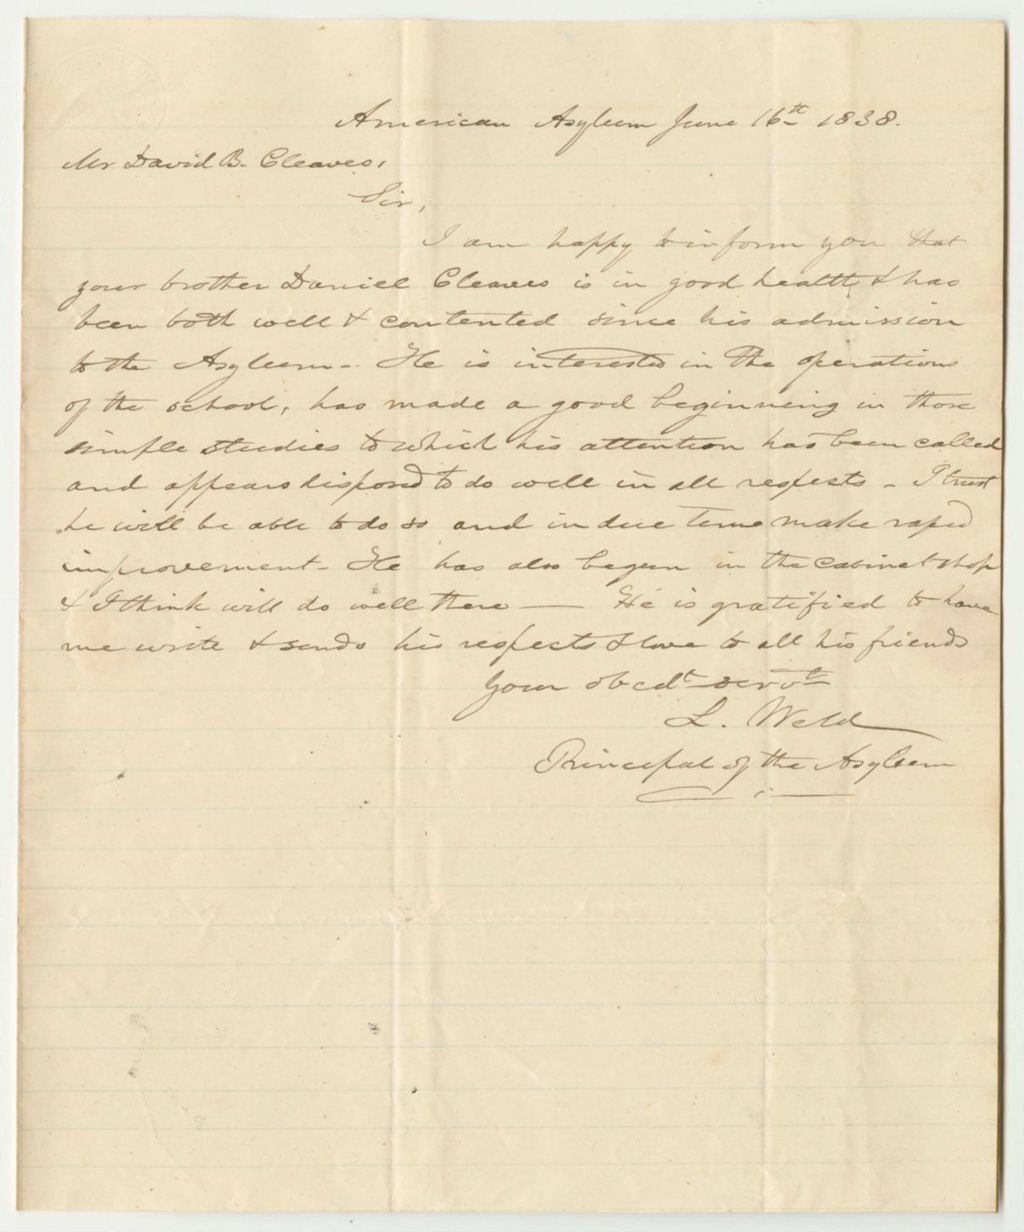 American Asylum June 16th 1838.
Mr David B. Cleaves,
Sir,
I am happy to inform you that
your brother Daniel Cleaves is in good health, & has
been both well & contented since his admission
to the Asylum. He is interested in the operations
of the school, has made a good beginning in those
simple studies to which his attention has been called
and appears disposed to do well in all respects - I trust
he will be able to do so and in due time make rapid
improvement - He has also begun in the cabinet shop
& I think will do well there — He is gratified to have
me write & sends his respects & love to all his friends
Your obedt servt
L. Weld
Principal of the Asylum